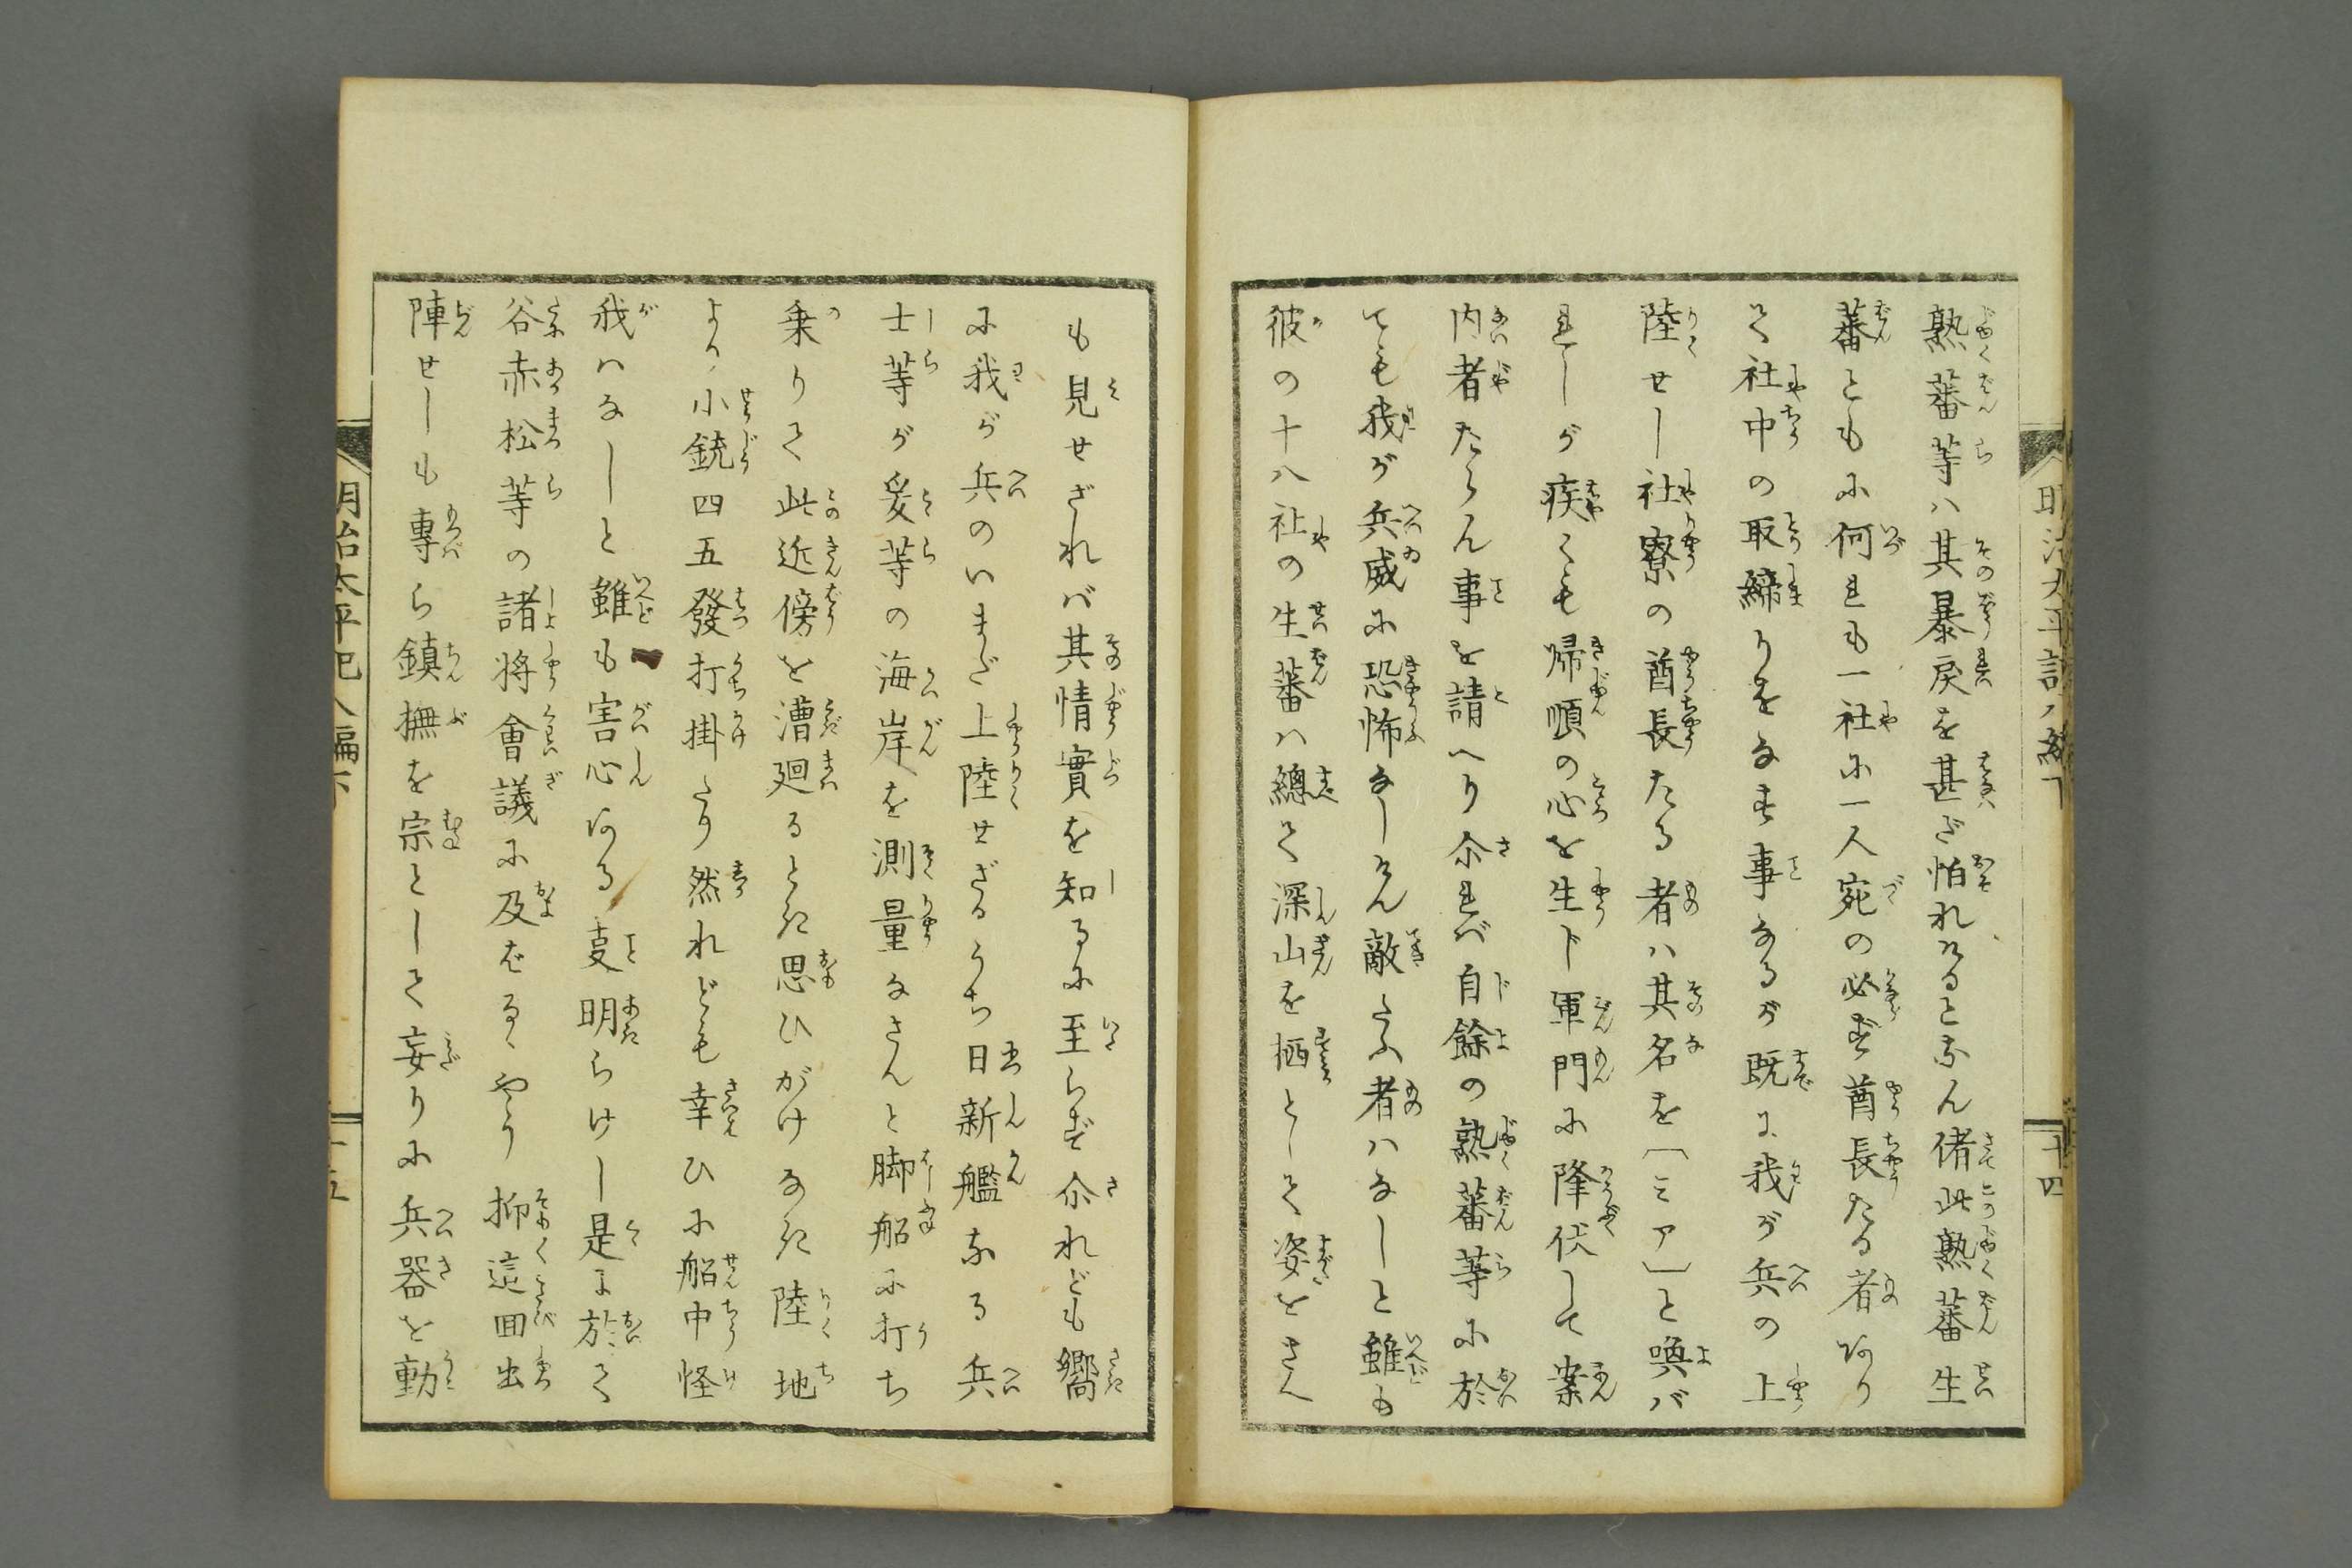 熟蕃等ハ其暴戻を甚ざ怕れけるとなん偖此熟蕃生
蕃ともに何れも一社に一人宛の必ず酋長たる者あり
て社中の取締りをなす事なるが既に我が兵の上
陸せし社寮の酋長たる者ハ其名を〔ミア〕と喚バ
れしが疾くも帰順の心を生ト軍門に降伏して案
内者たらん事を請へり尒れバ自餘の熟蕃等に於
ても我が兵威に恐怖なしけん敵たふ者ハなしと雖も
彼の十八社の生蕃ハ總て深山を栖として姿をさへ
も見せざれバ其情實を知るに至らず尒れども嚮
に我が兵のいまだ上陸せざるうち日新艦なる兵
士等が爰等の海岸を測量なさんと脚船に打ち
乗りて此近傍を漕廻るとき思ひがけなき陸地
より小銃四五發打掛たり然れども幸ひに船中怪
我ハなしと雖も害心ある叓明らけし是に於て
谷赤松等の諸将會議に及ばるゝやう抑這回出
陣せしも專ら鎮撫を宗として妄りに兵器を動
明治太平記八編下
十四
明治太平記八編下
十五